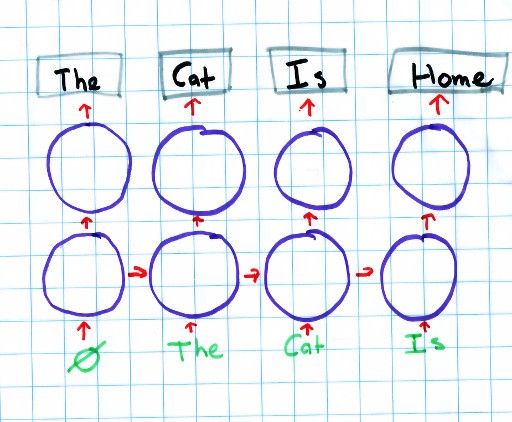 The Cat Is Home
Ø The Cat Is